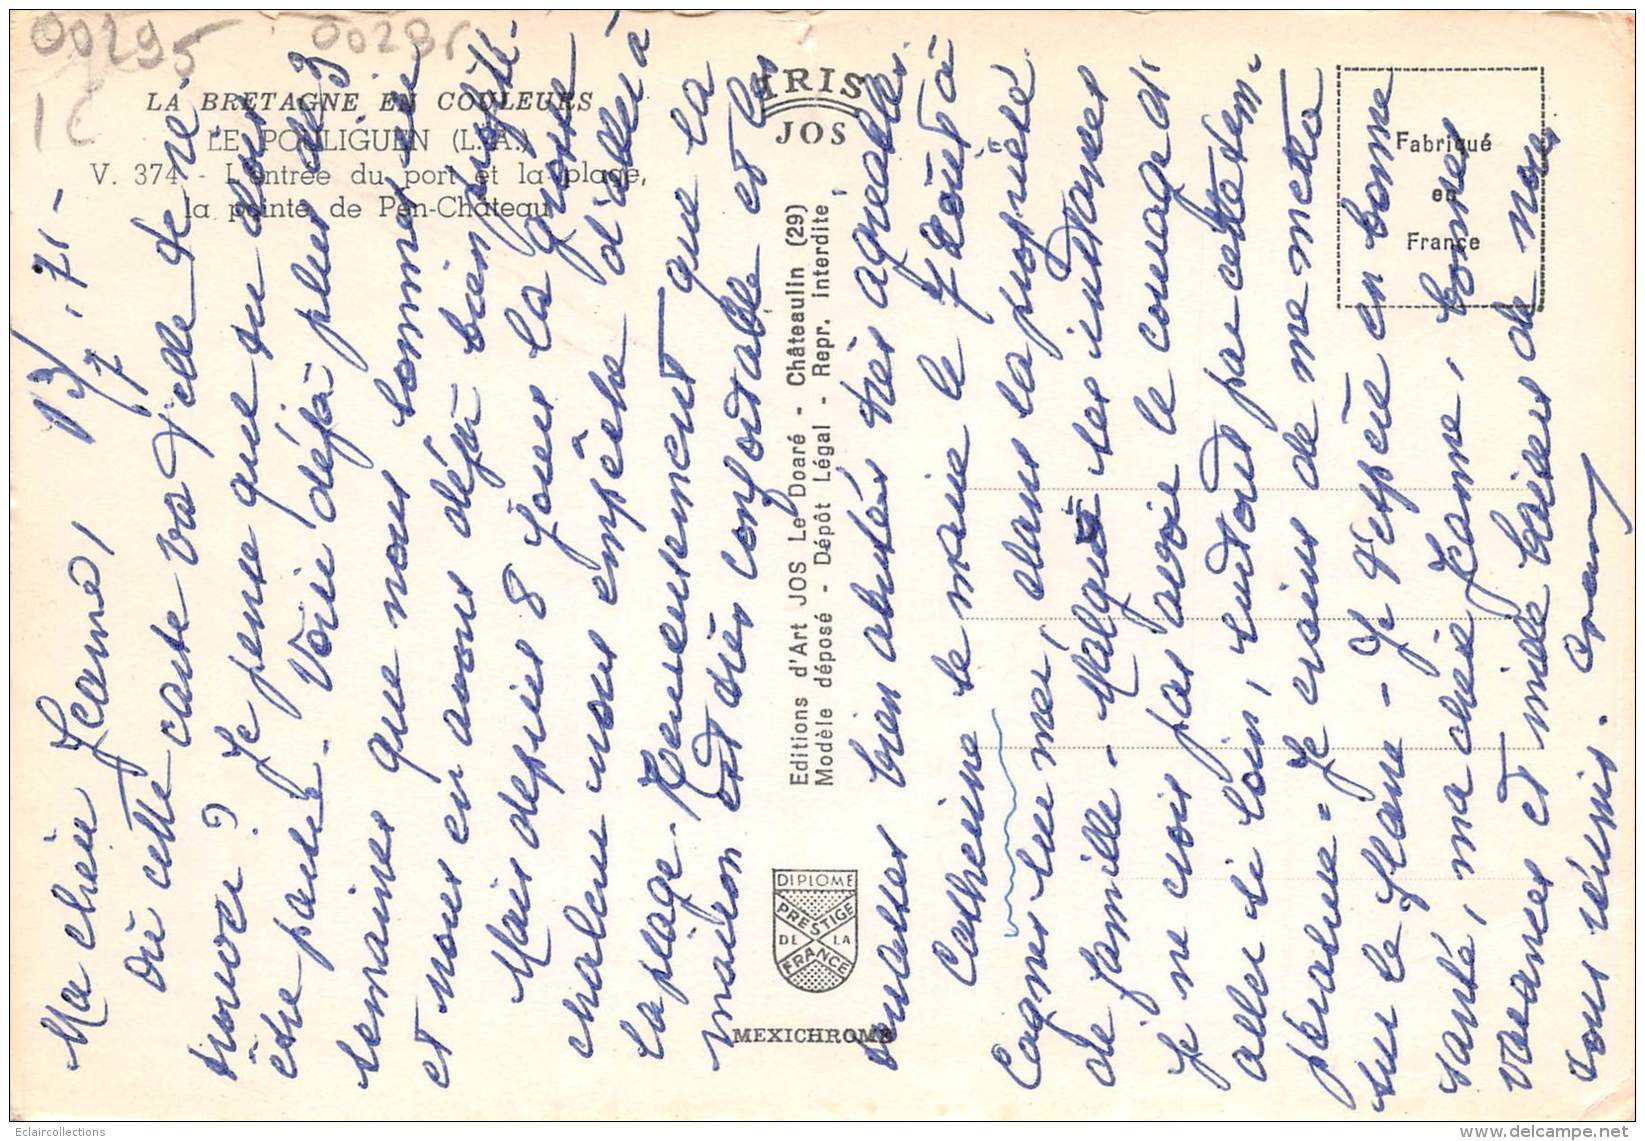 00295
00295
1 C
LA BRETAGNE EN COULEURS
LE POULIGUEN (L.-A.)
V. 374 - L'entrée du port et la plage,
la pointe de Pen-Château
IRIS
JOS
Fabriqué
en
France
Editions d'Art JOS Le Doaré - Châteaulin (29)
Modèle déposé - Dépôt Légal - Repr. interdite
DIPLOME
PRESTIGE
DE LA
FRANCE
MEXICHROME
13/7.71-
Ma chère Jeanne,
Où cette carte va-t-elle te
trouver ? Je pense que tu dois
être partie. Voici déjà plus de 3
semaines que nous sommes ici
et nous en avons déjà bien profité.
Mais depuis 8 jours la grosse
chaleur nous empêche d'aller à
la plage. Heureusement que la
maison est très confortable et les
terrasses bien abritées très agréables
Catherine se marie le 7 Août à
Cagnes sur mer, dans la propriété
de famille - Malgré ses instances
je ne crois pas avoir le courage d'
aller si loin, surtout par cette tem-
pérature - Je crains de me mettre
sur le flanc - Je t'espère en bonne
santé, ma chère Jeanne, bonnes
vacances et mille baisers de nous
tous réunis.
Eclaircollections